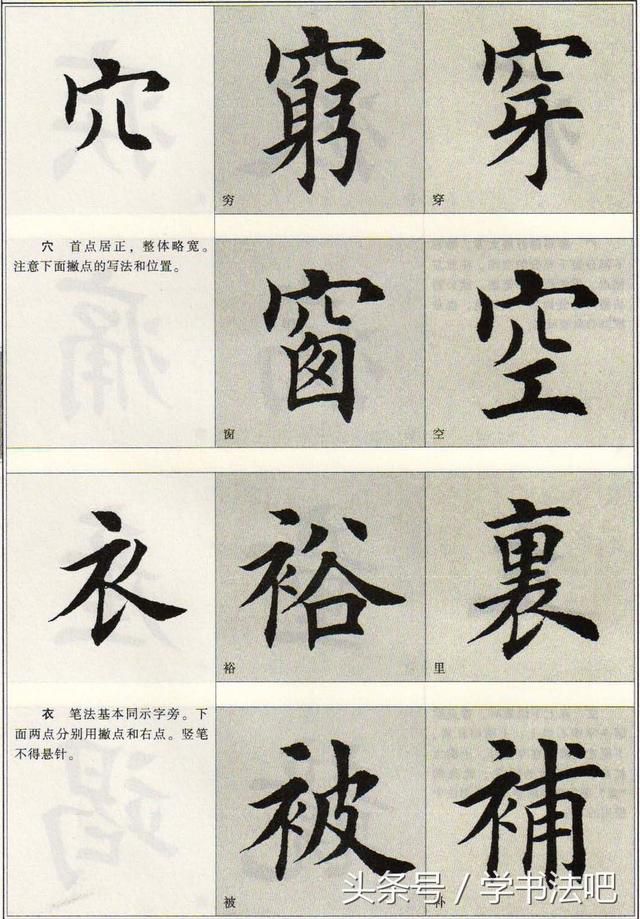 穴
窮
穿
穷
穿
穴 首点居正，整体略宽。
注意下面撇点的写法和位置。
窗
空
窗
空
衣
裕
裏
裕
里
衣 笔法基本同示字旁。下
面两点分别用撇点和右点。竖笔
不得悬针。
被
補
被
补
头条号／学书法吧